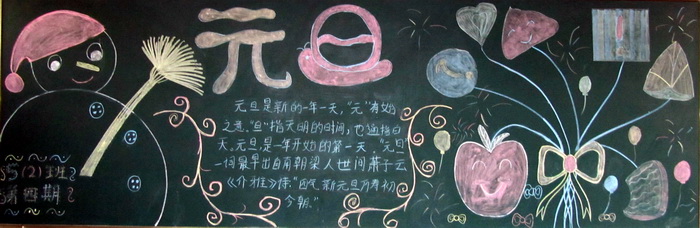 元旦
元旦是新的一年一天,"元"有始
之意,"旦"指天明的时间,也通指白
天。元旦是一年开始的第一天。"元旦"
一词最早出自南朝梁人世间萧子云
《介雅》诗:"四气新元旦,万寿初
今朝。"
5(2)班
第四期